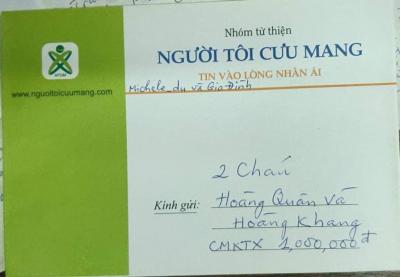 Nhóm từ thiện
NGƯỜI TÔI CƯU MANG
TIN VÀO LÒNG NHÂN ÁI
Michele du và Gia Đình
www.nguoitoicuumang.com
2 Cháu
Kính gửi: Hoàng Quân Và
Hoàng Khang
CMKTX 1,000,000đ